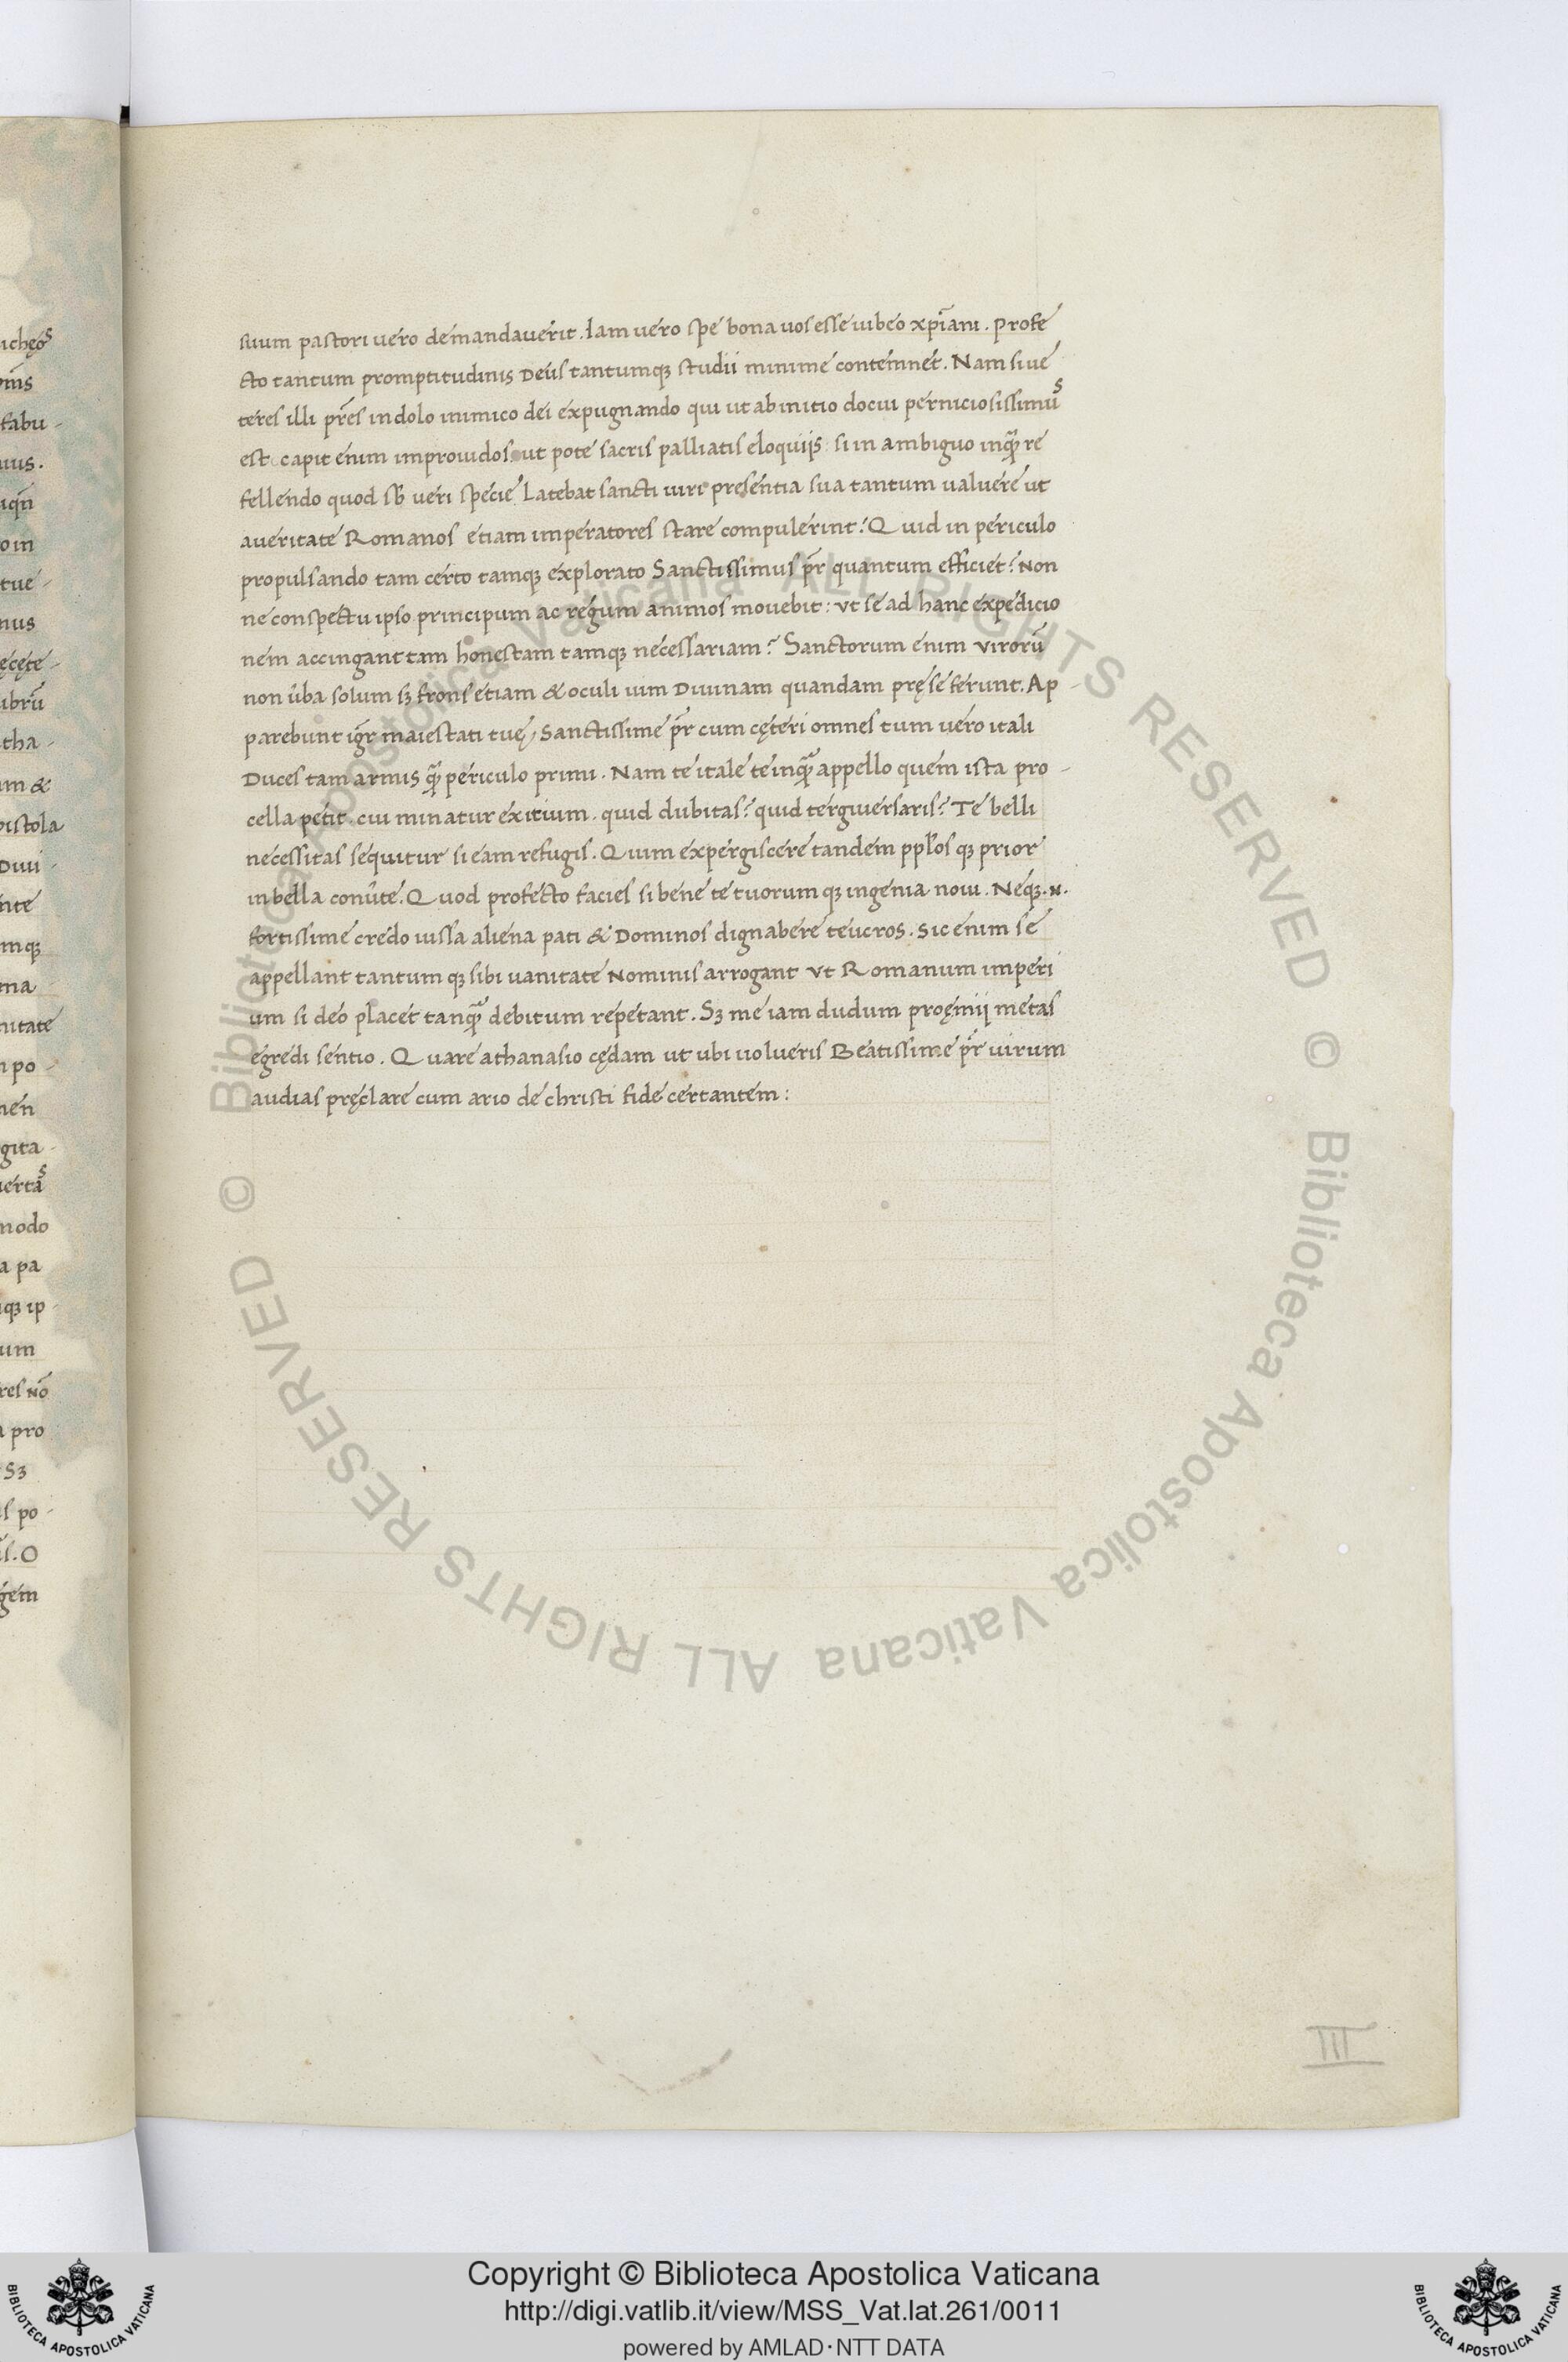 suum pastori uero demandauerit. Iam uero spe bona uos esse iubeo xp̄iani. Profe
cto tantum promptitudinis Deus tantumqꝫ studii minime contemnet. Nam si ue
teres illi pr̄es in dolo inimico dei expugnando qui ut ab initio docui perniciosissimuˢ
est capit enim improuidos ut pote sacris palliatis eloquiis: si in ambiguo inqᷓꝫ re
fellendo quod sb̄ ueri specie latebat sancti uiri presentia sua tantum ualuere ut
a ueritate Romanos etiam imperatores stare compulerint? Quid in periculo
propulsando tam certo tamqꝫ explorato Sanctissimus pr̄ quantum efficiet? Non
ne conspectu ipso principum ac regum animos mouebit: vt se ad hanc expedicio
nem accingant tam honestam tamqꝫ necessariam? Sanctorum enim virorū
non ūba solum sꝫ frons etiam & oculi uim Diuinam quandam pręse ferunt. Ap-
parebunt igr̄ maiestati tuę, Sanctissime pr̄ cum cęteri omnes tum uero itali
Duces tam armis qᷓꝫ periculo primi. Nam te itale te inqᷓꝫ appello quem ista pro-
cella petit. cui minatur exitium. quid dubitas? quid tergiuersaris? Te belli
necessitas sequitur si eam refugis. Quim expergiscere tandem pplōs qꝫ prior
in bella conūte. Quod profecto facies si bene te tuorum qꝫ ingenia noui. Neqꝫ .n.
fortissime credo iussa aliena pati & Dominos dignabere teucros. Sic enim se
appellant tantum qꝫ sibi uanitate Nominis arrogant vt Romanum imperi
um si deo placet tanqᷓꝫ debitum repetant. Sꝫ me iam dudum proęmii metas
egredi sentio. Quare athanasio cędam ut ubi uolueris Beatissime pr̄ uirum
audias pręclare cum ario de christi fide certantem:
III
ichęoˢ
fabu-
uus.
oin
tue-
nus
ęcęte-
ibrū
tha-
am &
pistola
Diui-
nte
mqꝫ
ma
nitate
n po-
nen
gita-
uertāˢ
modo
a pa
qꝫ ip-
um
res nō
a pro
Sꝫ
s po-
s. O
gem
© Biblioteca Apostolica Vaticana ALL RIGHTS RESERVED
© Biblioteca Apostolica Vaticana ALL RIGHTS RESERVED
Copyright © Biblioteca Apostolica Vaticana
http://digi.vatlib.it/view/MSS_Vat.lat.261/0011
powered by AMLAD·NTT DATA
BIBLIOTECA APOSTOLICA VATICANA
BIBLIOTECA APOSTOLICA VATICANA